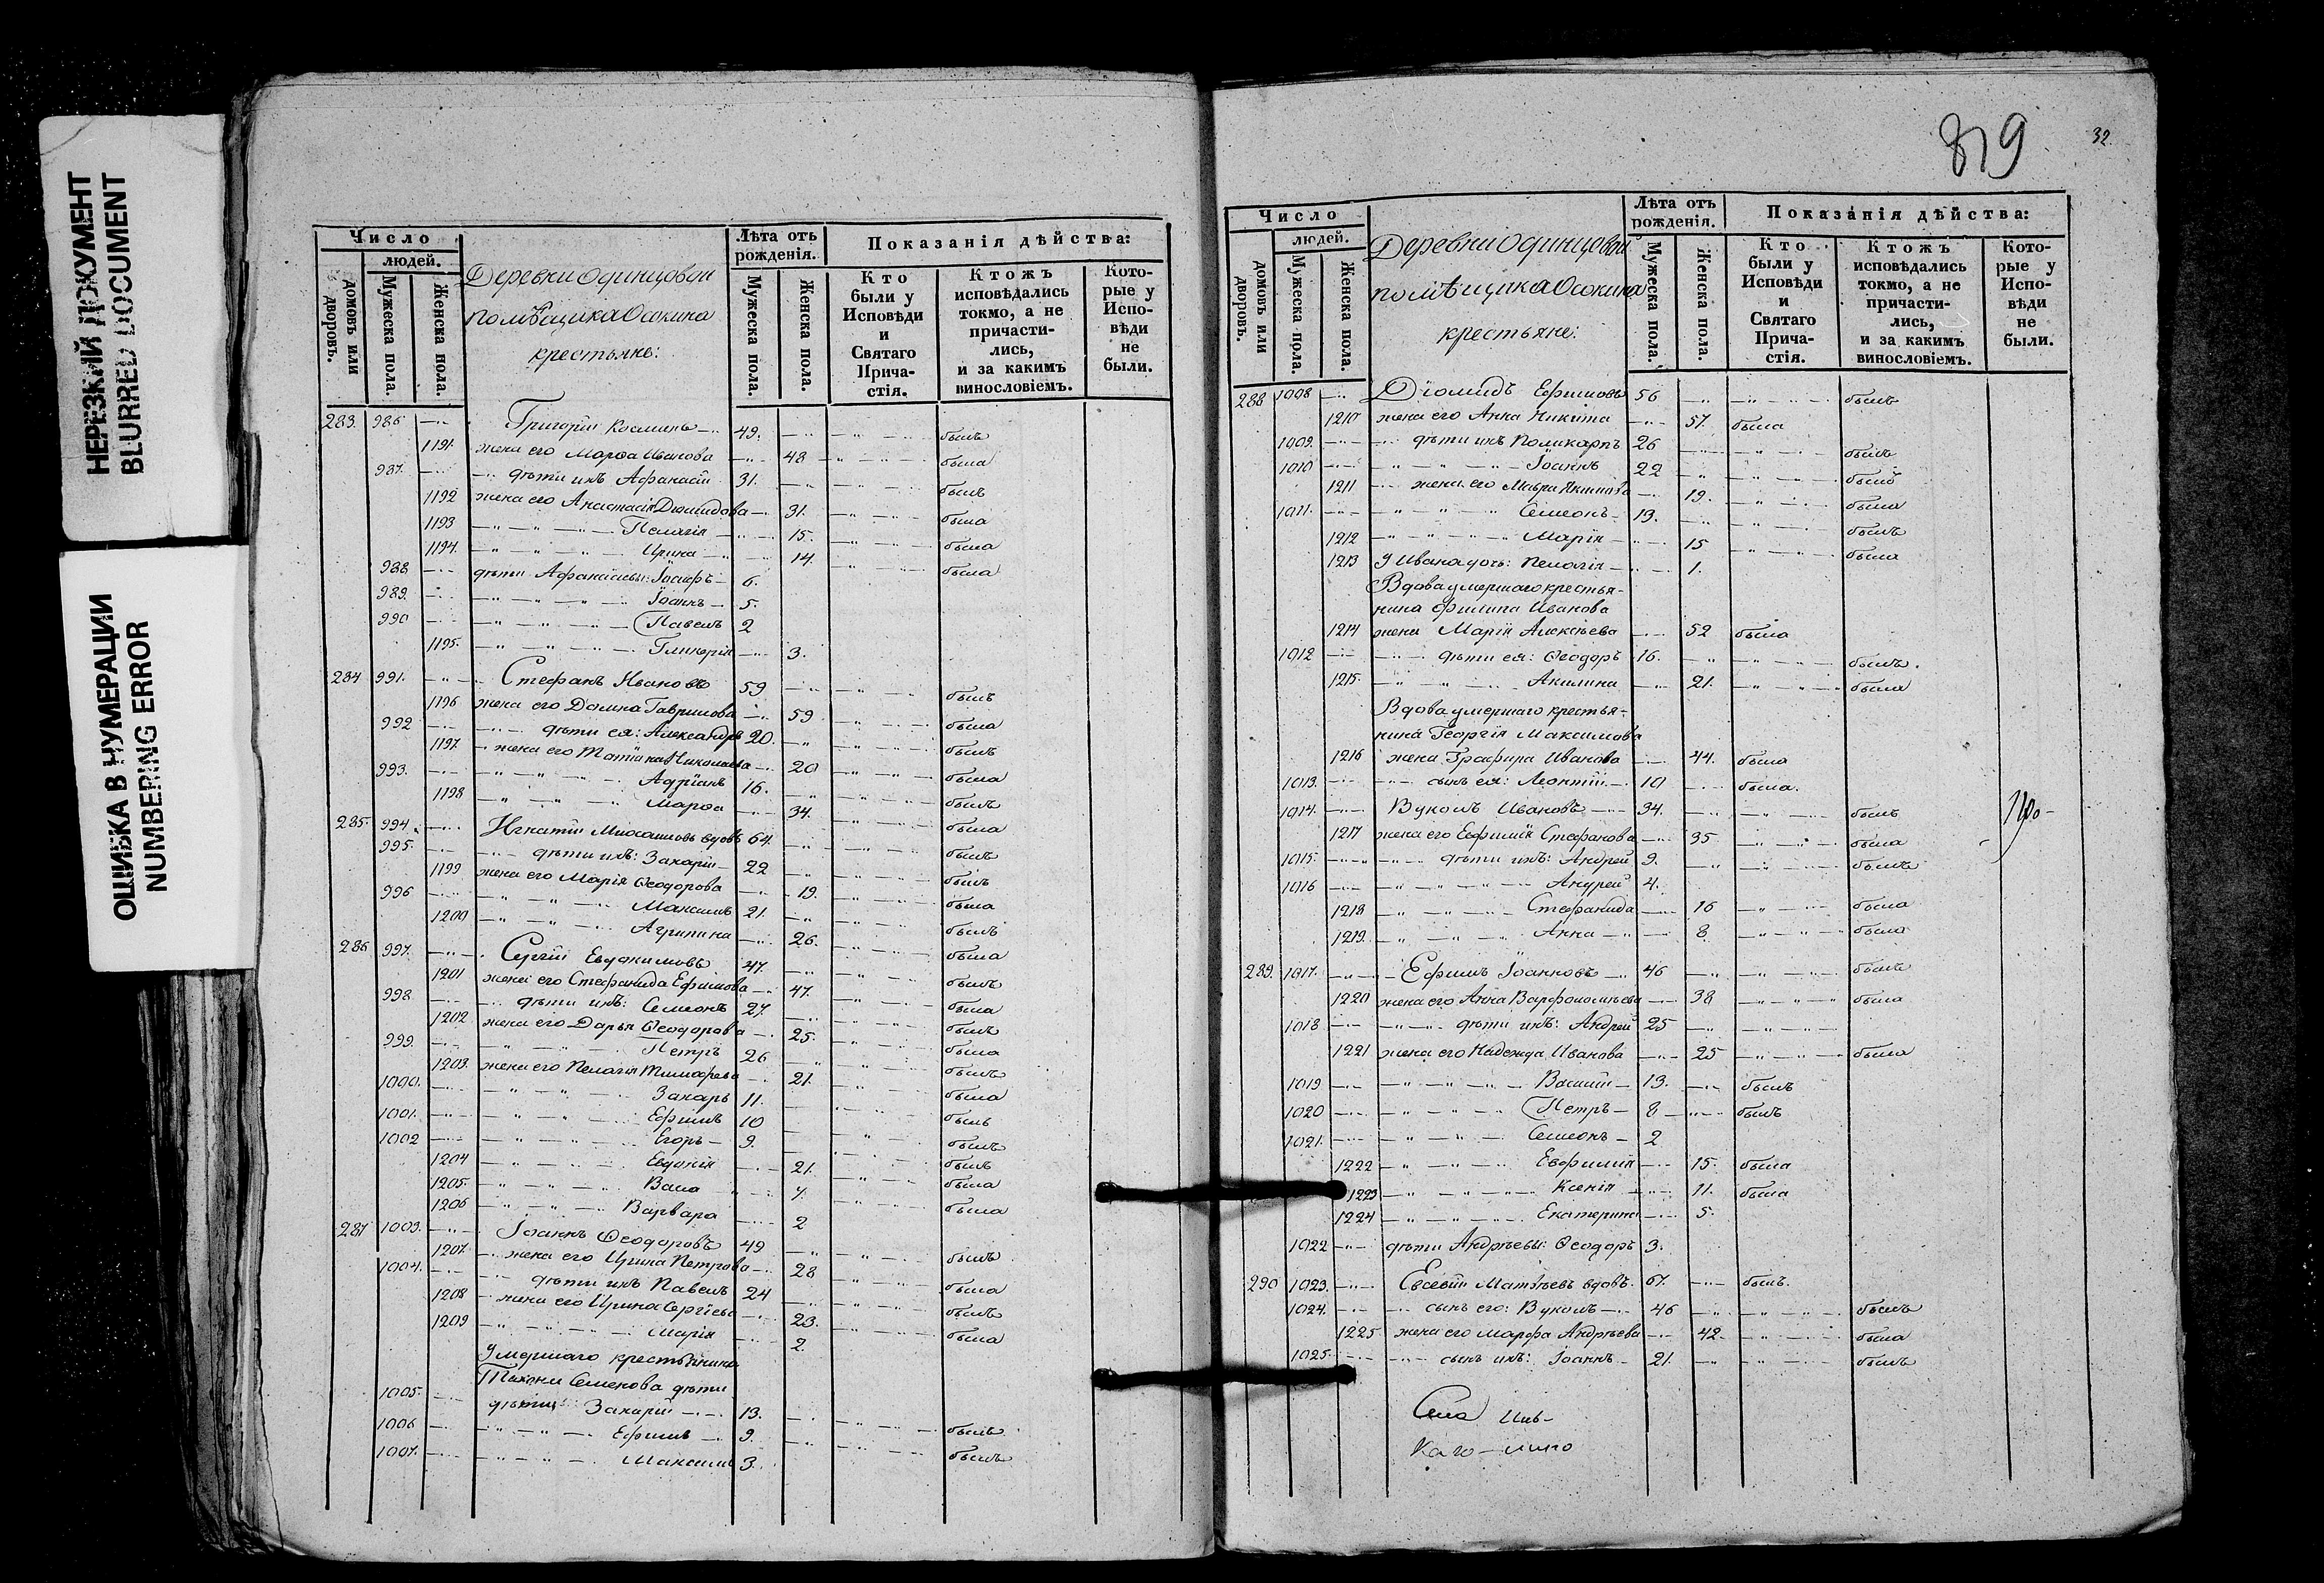 НЕРЕЗКИЙ ДОКУМЕНТ
BLURRED DOCUMENT
ОШИБКА В НУМЕРАЦИИ
NUMBERING ERROR
Число
людей.
домовъ или дворовъ.
Мужеска пола.
Женска пола.
Деревни Одинцовой
помѣщика Осокина
крестьяне:
Лѣта отъ рожденія.
Мужеска пола.
Женска пола.
Показанія дѣйства:
Кто были у Исповѣди и Святаго Прича-стія.
Ктожъ исповѣдались токмо, а не причасти-лись, и за какимъ винословіемъ.
Кото-рые у Испо-вѣди не были.
283. 986 Григорій Косминъ 49. былъ
1191. жена его Марѳа Иванова 48 была
987. дѣти ихъ Афанасій 31. былъ
1192 жена его Анастасія Диомидова 31. была
1193 Пелагія 15. была
1194. Ирина 14. была
988 дѣти Афанасьевы: Іосифъ 6.
989. Іоаннъ 5.
990 Павелъ 2
1195. Гликерія 3.
284 991. Стефанъ Ивановъ 59 былъ
1196 жена его Домна Гаврилова 59 была
992 дѣти ея: Александръ 20. былъ
1197. жена его Татіана Николаева 20 была
993. Адріанъ 16. былъ
1198 Марѳа 34. была
285. 994. Игнатій Михаиловъ вдовъ 64. былъ
995. дѣти ихъ: Захарій 22 былъ
1199 жена его Марія Ѳеодорова 19. была
996 Максимъ 21. былъ
1200 Агрипина 26. была
286 997. Сергій Евдокимовъ 47. былъ
1201 жена его Стефанида Ефимова 47. была
998 дѣти ихъ: Семеонъ 27. былъ
1202 жена его Дарья Ѳеодорова 25. была
999. Петръ 26 былъ
1203. жена его Пелагія Тимофеева 21. была
1000. Захаръ 11. былъ
1001. Ефимъ 10 былъ
1002 Егоръ 9. былъ
1204 Евдокія 21. была
1205. Васса была
1206 Варвара 2
287 1003. Іоаннъ Ѳеодоровъ 49 былъ
1207. жена его Ирина Петрова 28 была
1004. дѣти ихъ Павелъ 24 былъ
1208 жена его Ирина Сергіева 23. была
1209 Марія 2
Умершаго крестьянина
Семенова дѣти
1005. дѣти: Захарій 13. былъ
1006 Ефимъ 9. былъ
1007. Максимъ 3.
819
32
Число
людей.
домовъ или дворовъ.
Мужеска пола.
Женска пола.
Деревни Одинцовой
помѣщика Осокина
крестьяне:
Лѣта отъ рожденія.
Мужеска пола.
Женска пола.
Показанія дѣйства:
Кто были у Исповѣди и Святаго Прича-стія.
Ктожъ исповѣдались токмо, а не причасти-лись, и за какимъ винословіемъ.
Кото-рые у Испо-вѣди не были.
288 1008 Діомидъ Ефимовъ 56 былъ
1210 жена его Анна Никита 57. была
1009. дѣти ихъ Поликарпъ 26 былъ
1010 Іоаннъ 22 былъ
1211 жена его Мавра Якимова 19. была
1011. Семеонъ 13. былъ
1212 Марія 15 была
1213 У Ивана дочь: Пелагія 1.
Вдова умершаго крестья-
нина Филипа Иванова
1214 жена Марія Алексѣева 52 была
1012 дѣти ея: Ѳеодоръ 16. былъ.
1215. Акилина 21. была
Вдова умершаго крестья-
нина Георгія Максимова
1216 жена Глафира Иванова 44. была
1013. сынъ ея: Леонтій 10 была.
1014. Вуколъ Ивановъ 34. былъ
1217 жена его Евфимія Стефанова 35 была
1015. дѣти ихъ: Андрей 9. былъ
1016 Андрей 4.
1218 Стефанида 16 была
1219. Анна 8. была
289. 1017. Ефимъ Іоанновъ 46 былъ
1220 жена его Анна Варфоломѣева 38 была
1018 дѣти ихъ: Андрей 25
1221 жена его Надежда Иванова 25 была
1019 Василій 13. былъ
1020 Петръ 8 былъ
1021. Семеонъ 2
1222 Евфимія 15. была
1223 Ксенія 11. была
1224 Екатерина 5.
1022 дѣти Андрѣевы: Ѳеодоръ 3.
290 1023. Евсевій Матѳѣевъ вдовъ. 67. былъ.
1024. сынъ его: Вуколъ 46 былъ
1225 жена его Марфа Андрѣева 42. была
1025. сынъ ихъ: Іоаннъ 21. былъ